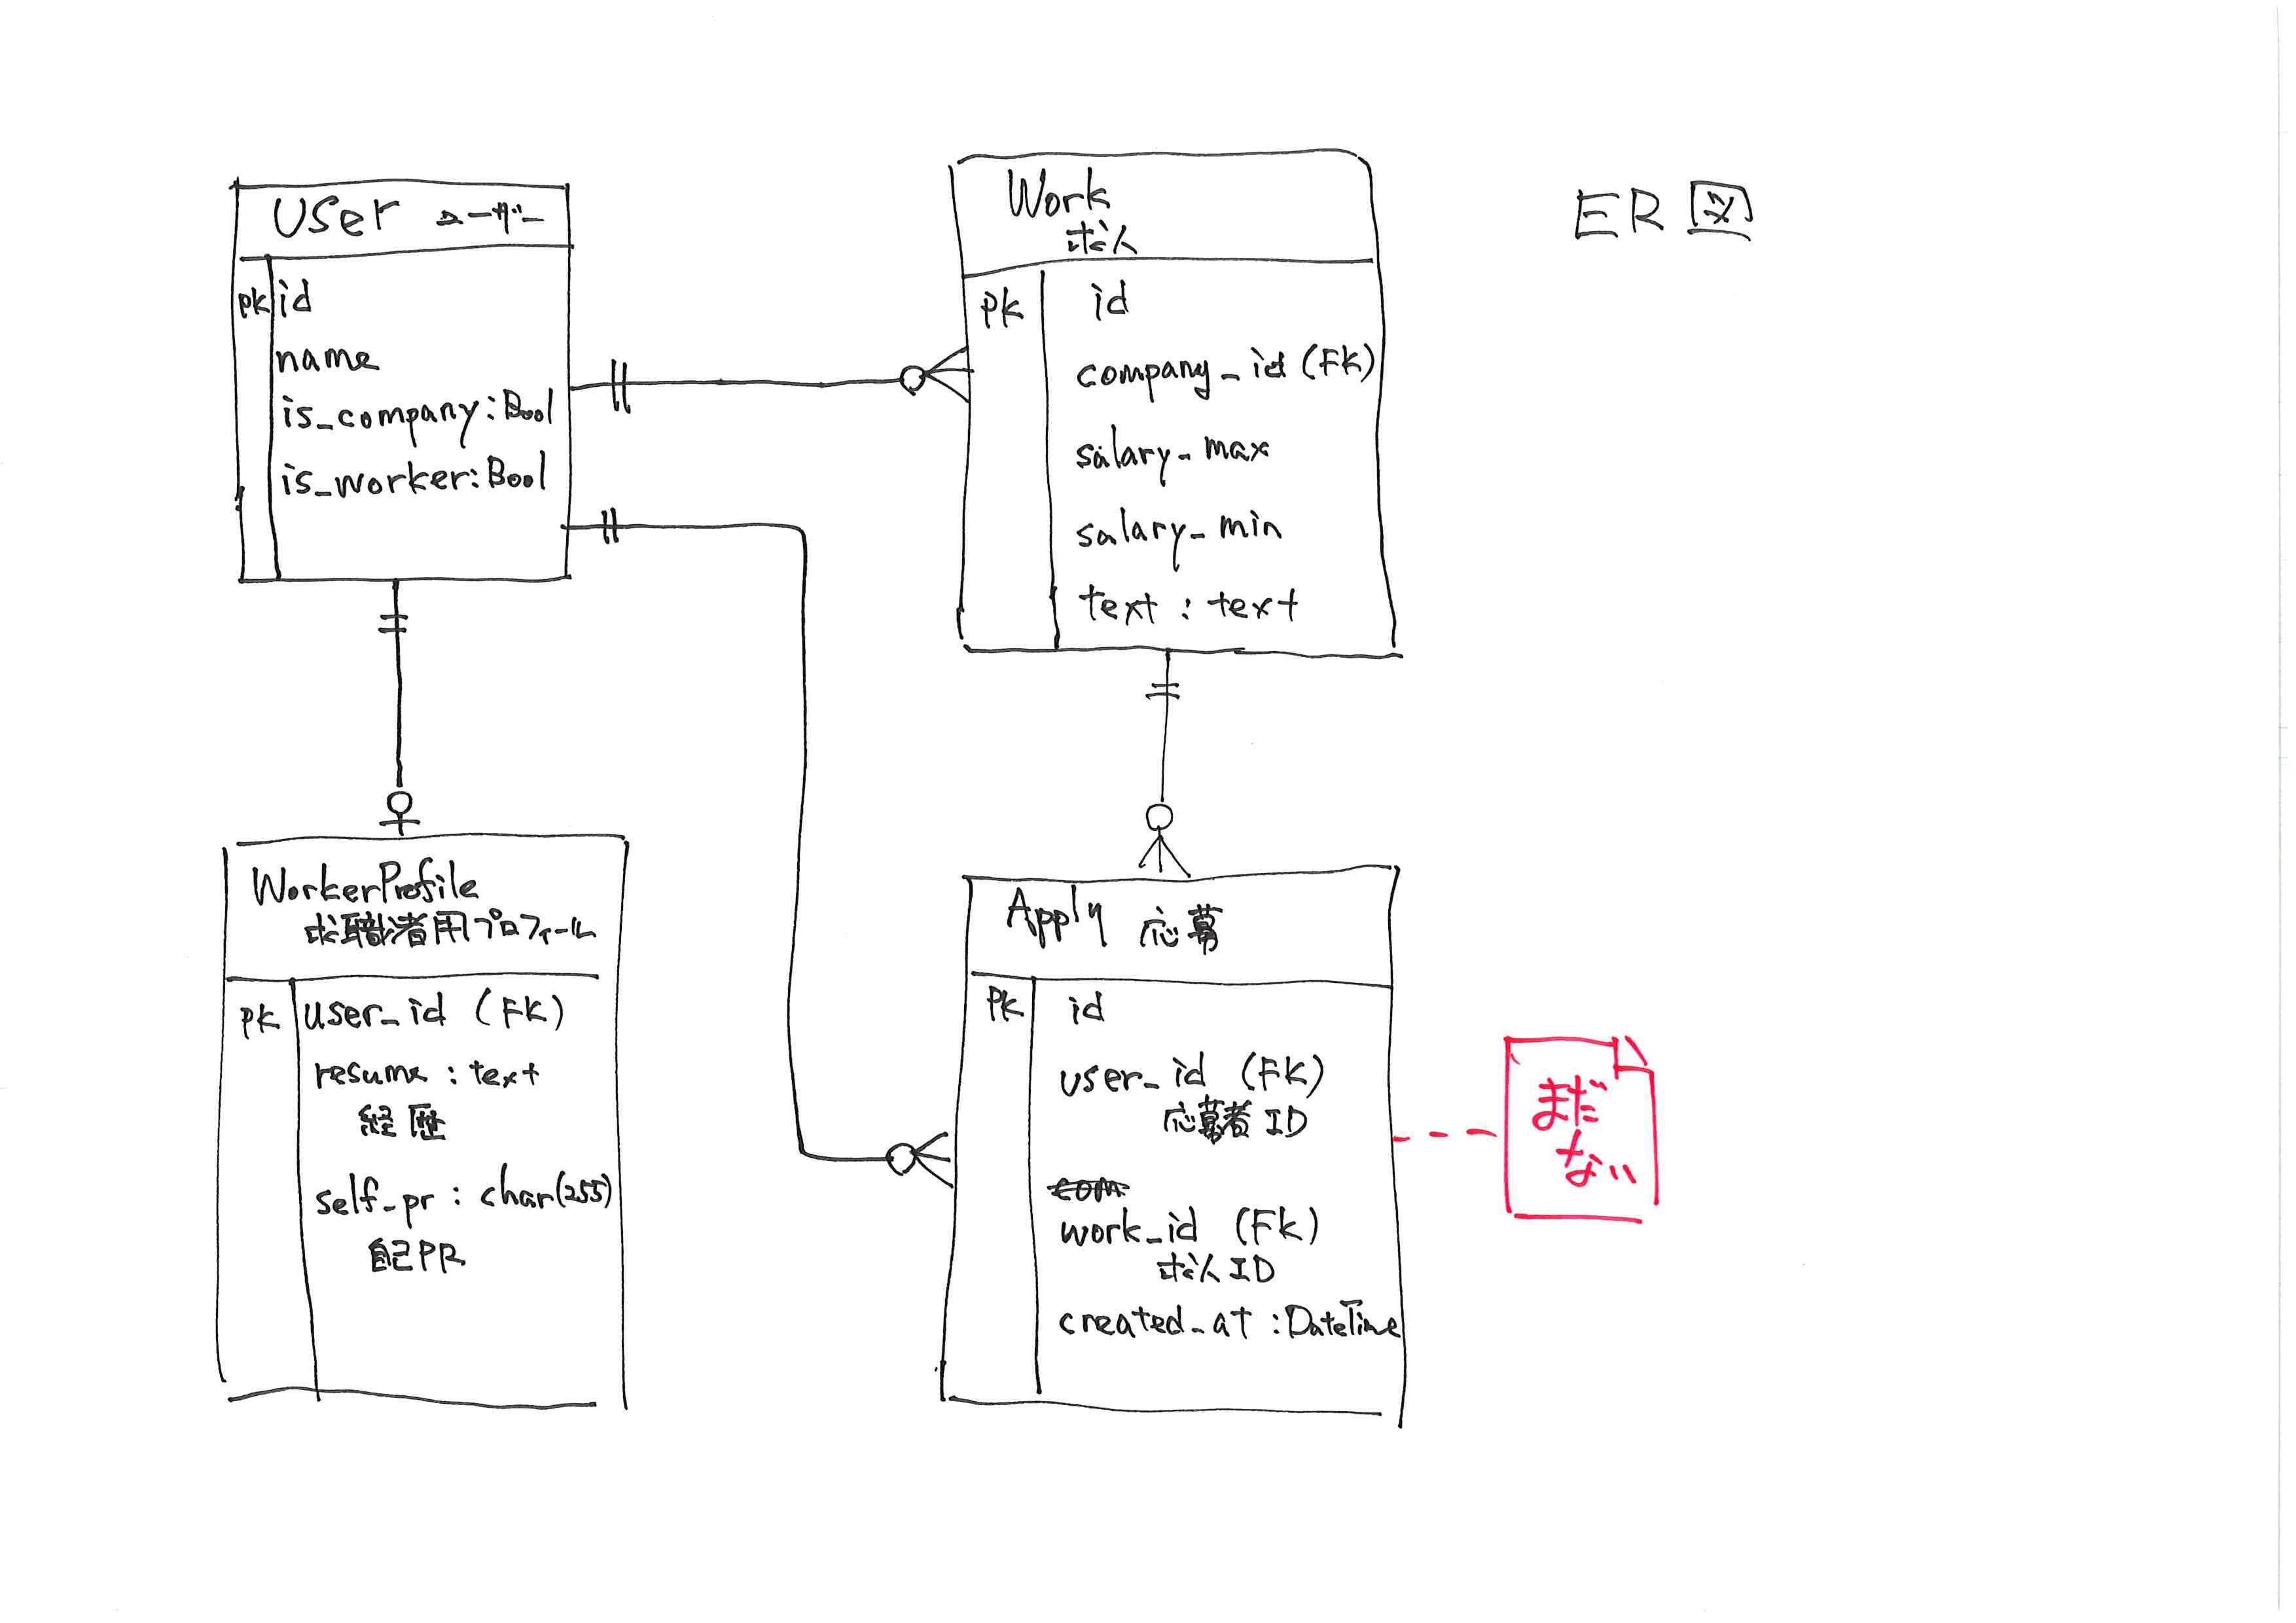 ER図
User ユーザー
pk id
name
is_company:Bool
is_worker:Bool
Work
求人
pk id
company_id (FK)
salary_max
salary_min
text : text
WorkerProfile
求職者用プロフィール
pk user_id (FK)
resume : text
経歴
self_pr : char(255)
自己PR
Apply 応募
Pk id
user_id (FK)
応募者ID
com
work_id (Fk)
求人ID
created_at :DateTime
まだ
ない